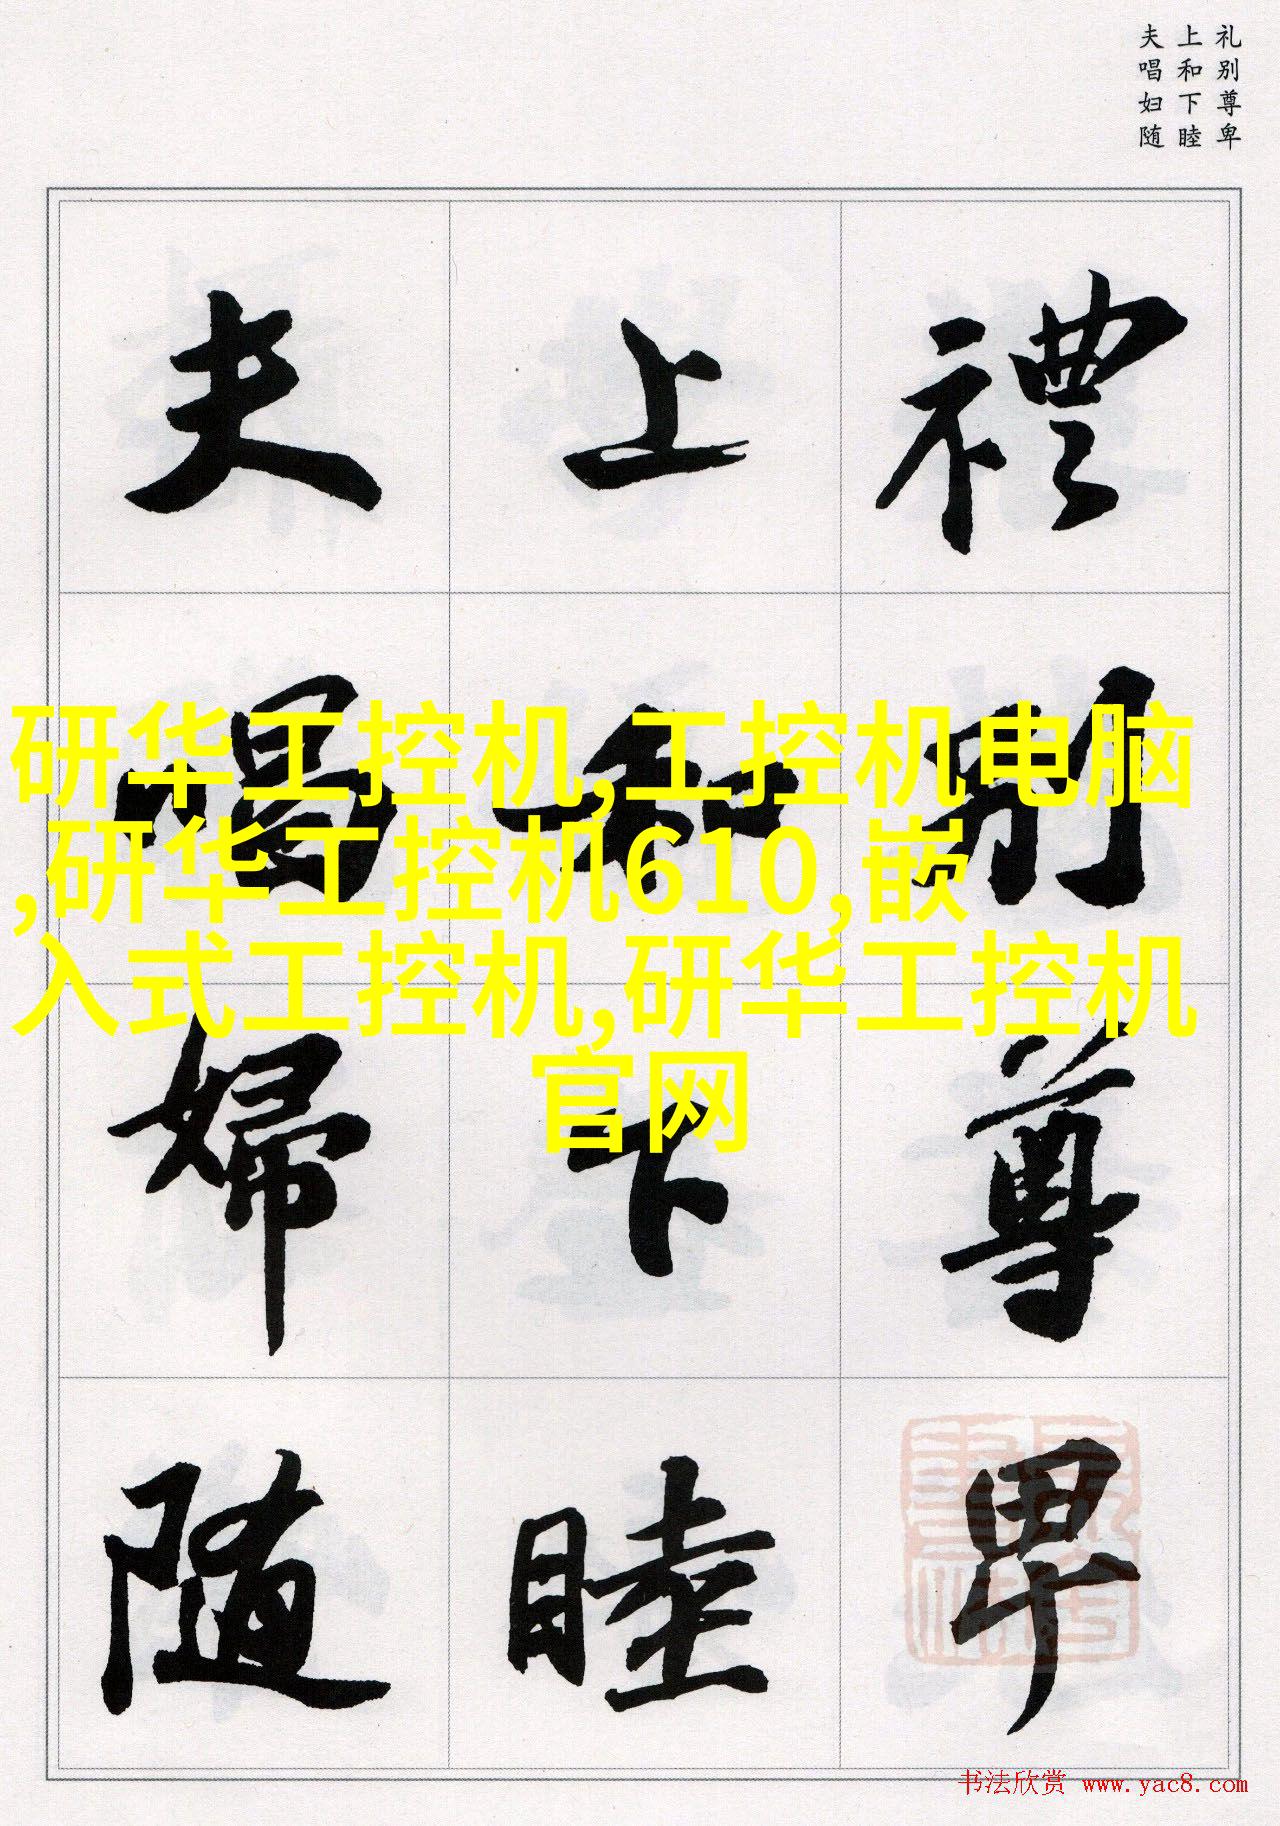 礼别尊卑
上和下睦
夫唱妇随
禮别尊卑
上和下睦
夫唱婦随
研华工控机,工控机电脑
,研华工控机610,嵌
入式工控机,研华工控机
官网
书法欣赏 www.yac8.com